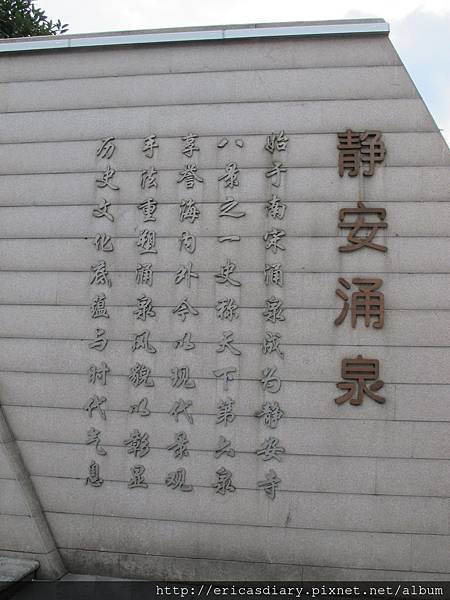 静安涌泉
始于南宋涌泉成为静安寺
八景之一史称天下第六泉
享誉海内外今以现代景观
手法重塑涌泉风貌以彰显
历史文化底蕴与时代气息
http://ericasdiary.pixnet.net/album